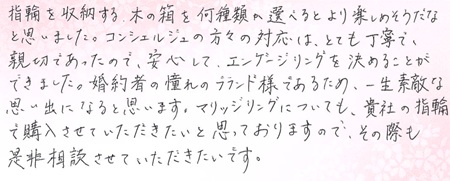 指輪を収納する、木の箱を何種類か選べるとより楽しめそうだな
と思いました。コンシェルジュの方々の対応は、とても丁寧で、
親切であったので、安心して、エンゲージリングを決めることが
できました。婚約者の憧れのブランド様であるため、一生素敵な
思い出になると思います。マリッジリングについても、貴社の指輪
で購入させていただきたいと思っておりますので、その際も
是非相談させていただきたいです。